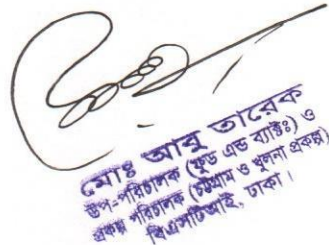 মোঃ আবু তারেক
উপ-পরিচালক (ফুড এন্ড ব্যাক্টিঃ) ও
প্রকল্প পরিচালক (চট্টগ্রাম ও খুলনা প্রকল্প)
বিএসটিআই, ঢাকা।